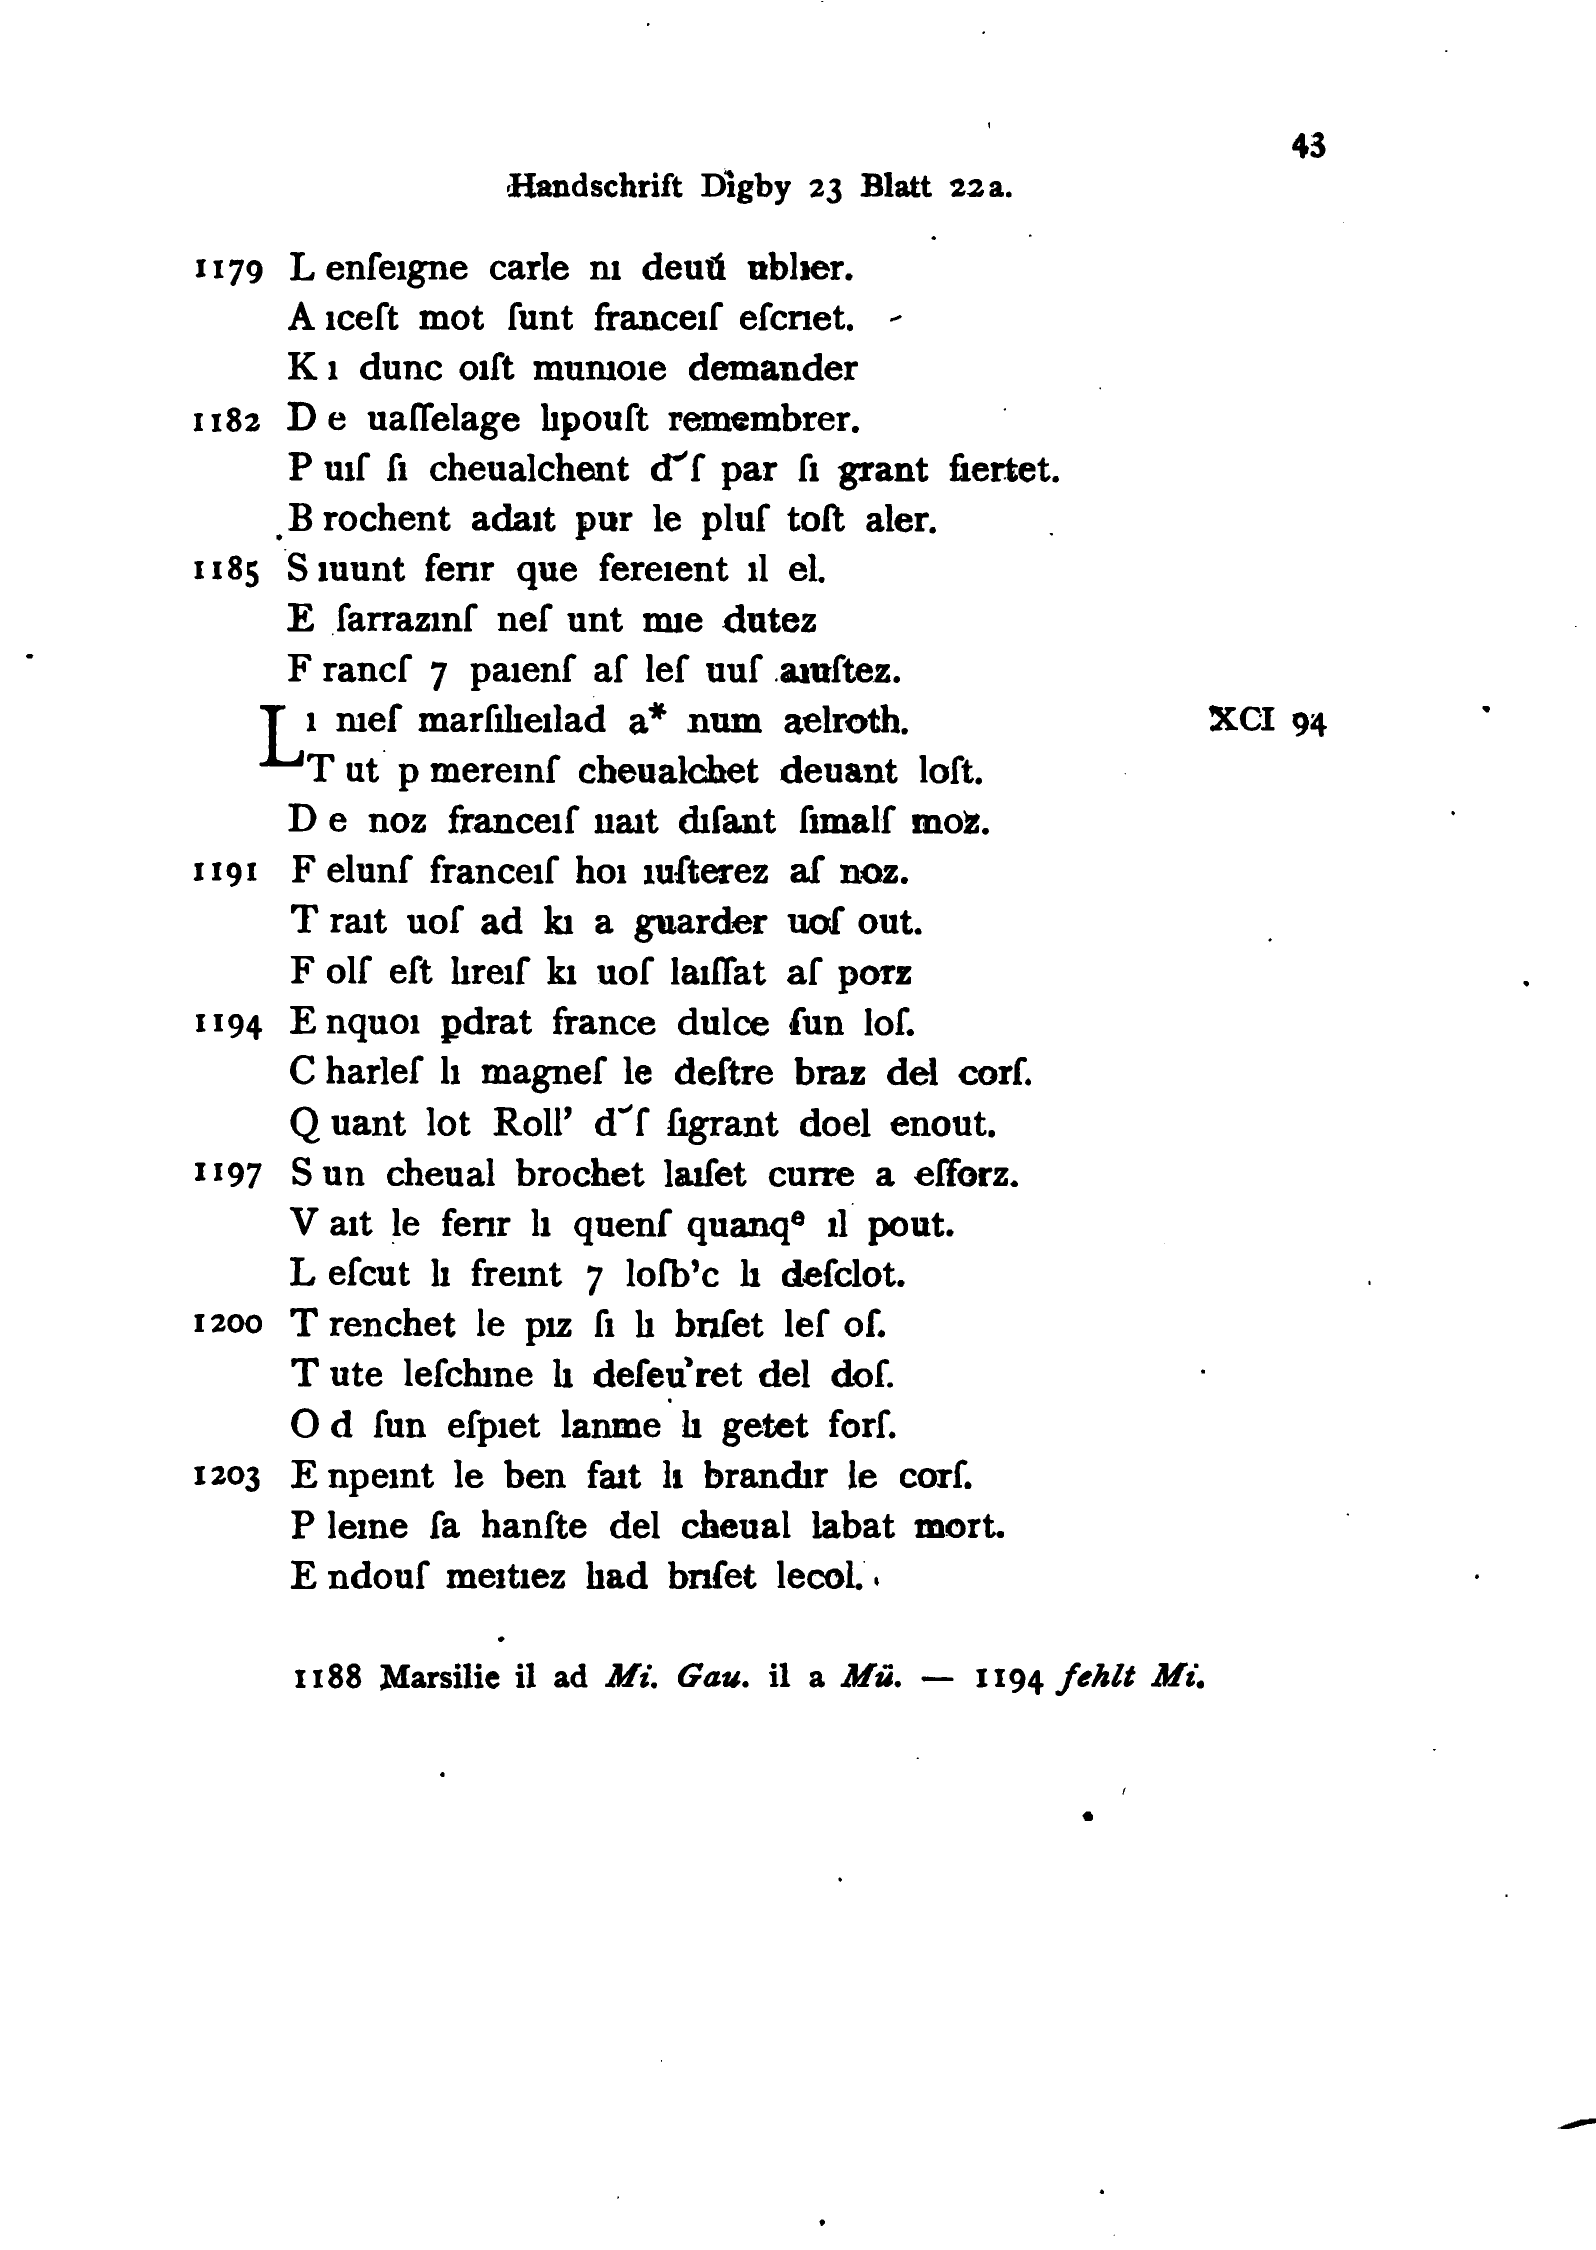 43
Handschrift Digby 23 Blatt 22a.
1179 L enſeıgne carle nı deuu̓ ublıer.
A ıceſt mot ſunt franceıſ eſcrıet.
K ı dunc oıſt munıoıe demander
1182 D e uaſſelage lıpouſt remembrer.
P uıſ ſı cheualchent d˜ſ par ſı grant fıertet.
B rochent adaıt pur le pluſ toſt aler.
1185 S ıuunt ferır que fereıent ıl el.
E ſarrazınſ neſ unt mıe dutez
F rancſ 7 paıenſ aſ leſ uuſ aıuſtez.
L ı nıeſ marſılıeılad a* num aelroth. XCI 94
T ut p mereınſ cheualchet deuant loſt.
D e noz franceıſ uaıt dıſant ſımalſ moz.
1191 F elunſ franceıſ hoı ıuſterez aſ noz.
T raıt uoſ ad kı a guarder uoſ out.
F olſ eſt lıreıſ kı uoſ laıſſat aſ porz
1194 E nquoı pdrat france dulce ſun loſ.
C harleſ lı magneſ le deſtre braz del corſ.
Q uant lot Roll’ d˜ſ ſıgrant doel enout.
1197 S un cheual brochet laıſet curre a eſforz.
V aıt le ferır lı quenſ quanqᵉ ıl pout.
L eſcut lı freınt 7 loſb’c lı deſclot.
1200 T renchet le pız ſı lı brıſet leſ oſ.
T ute leſchıne lı deſeu’ret del doſ.
O d ſun eſpıet lanme lı getet forſ.
1203 E npeınt le ben faıt lı brandır le corſ.
P leıne ſa hanſte del cheual labat mort.
E ndouſ meıtıez lıad brıſet lecol.
1188 Marsilie il ad Mi. Gau. il a Mü. — 1194 fehlt Mi.